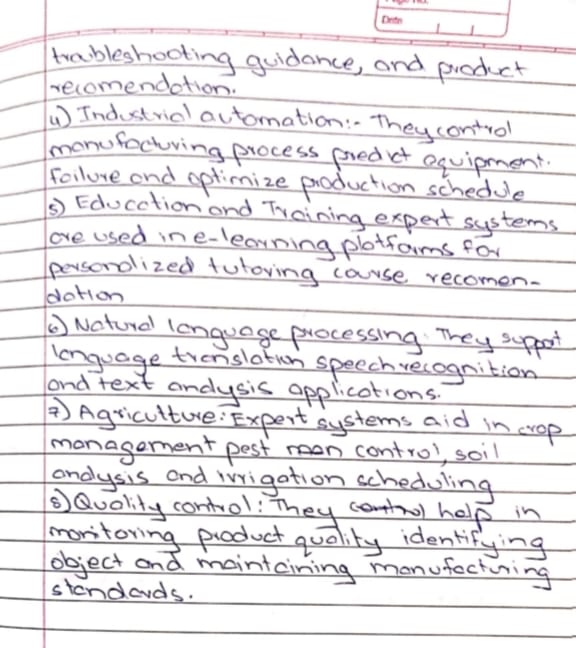 Page No.
Date
trableshooting guidance, and product
recomendation.
4) Industrial automation:- They control
manufacturing process predict equipment.
failure and optimize production schedule
5) Education and Training expert systems
are used in e-learning platforms for
personalized tutoring course recomen-
dation
6) Natural language processing: They support
language translation speech recognition
and text analysis applications.
7) Agriculture: Expert systems aid in crop
management pest control, soil
analysis and irrigation scheduling
8) Quality control: They control help in
monitoring product quality identifying
object and maintaining manufacturing
standards.